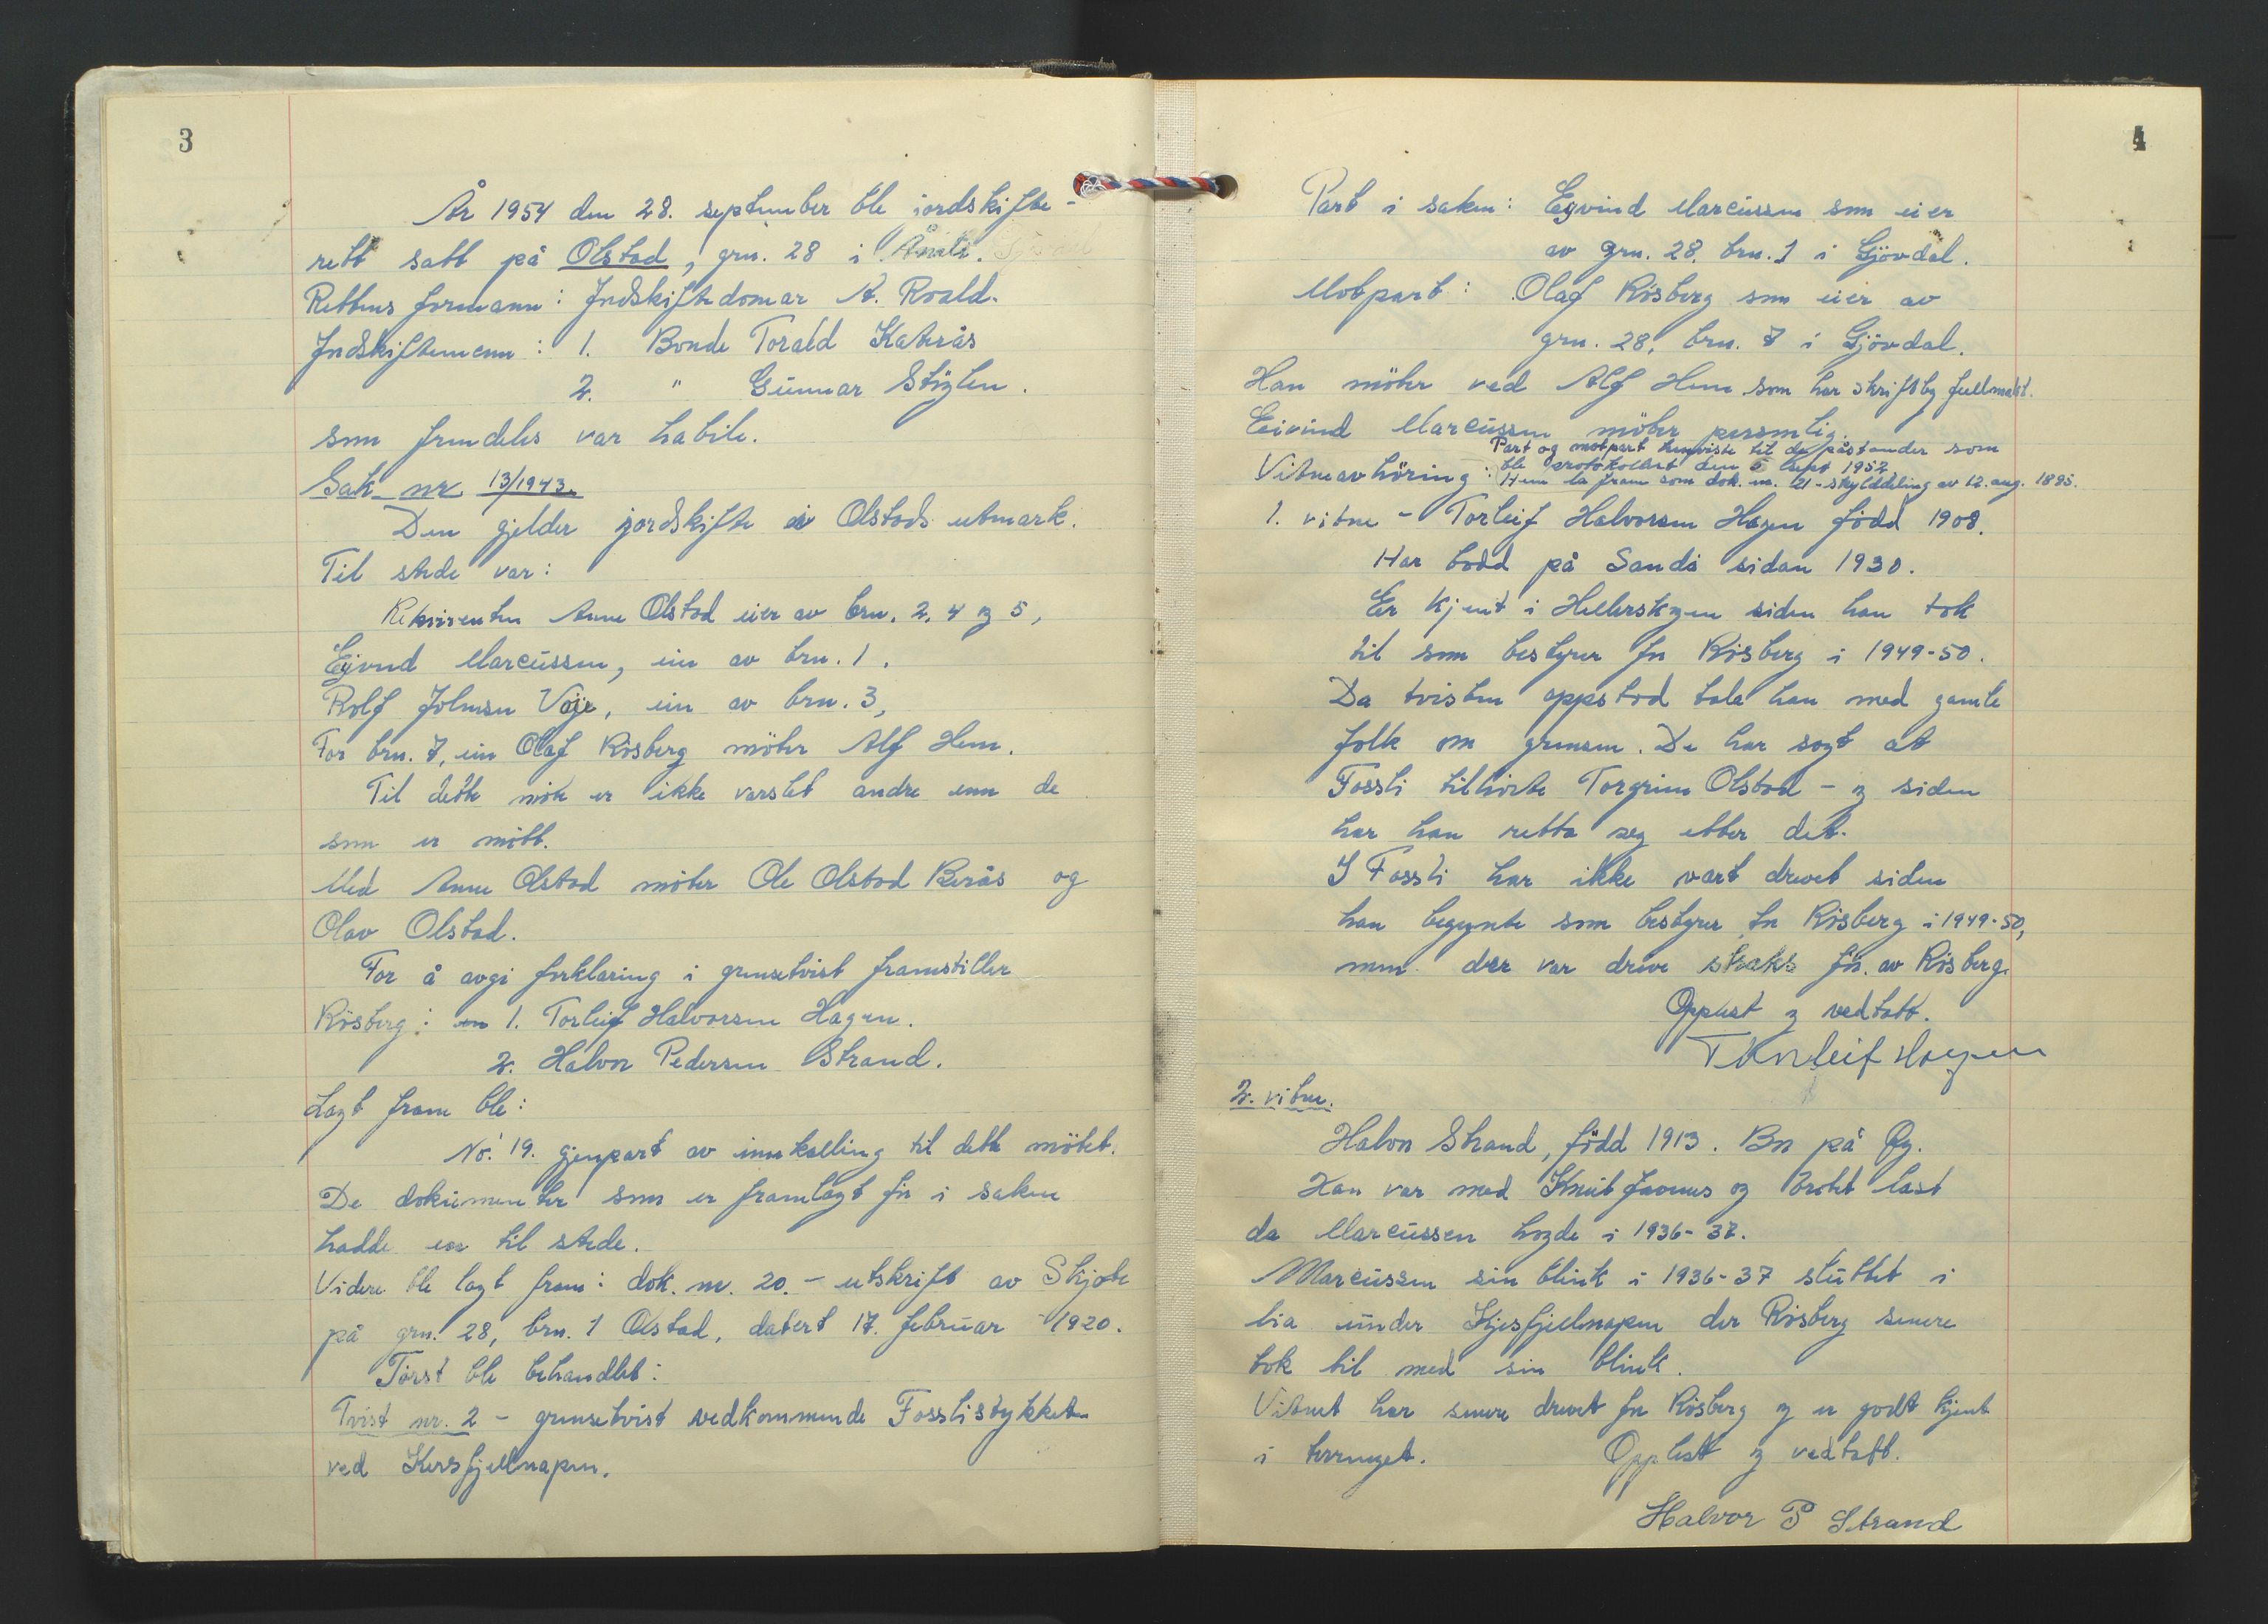 3
År 1954 den 28. september ble jordskifte-
rett satt på Olstad, grn. 28 i Åmli.
Rettens formann: Jordskiftedomar A. Roald.
Jordskiftemenn: 1. Bonde Torald Katerås
2. " Gunnar Stiglen.
som fremdeles var habile.
Sak nr 13/1943.
Den gjelder jordskifte i Olstads utmark.
Til stede var:
Rekvirenten Anne Olstad eier av brn. 2, 4 og 5,
Ejvind Marcussen, eier av brn. 1.
Rolf Johnsen Voje, eier av brn. 3,
For brn. 7, eier Olaf Risberg möter Alf Hem.
Til dette möte er ikke varslet andre enn de
som er mött.
Med Anne Olstad möter Ole Olstad Berås og
Olav Olstad.
For å avgi forklaring i grensetvist framstiller
Rösberg: 1. Torleif Halvorsen Hagen.
2. Halvor Pedersen Strand.
Lagt fram ble:
No. 19. gjenpart av innkalling til dette mötet.
De dokumenter som er framlagt för i saken
hadde en til stede.
Videre ble lagt fram: dok. nr. 20. - utskrift av Skjöte
på grn. 28, brn. 1 Olstad, datert 17. februar 1920.
Först ble behandlet:
Tvist nr. 2 - grensetvist vedkommende Fosslistykket
ved Kersfjellnapen.
4
Part i saken: Egvind Marcussen som eier
av grn. 28, brn. 1 i Gjövdal.
Motpart: Olaf Rösberg som eier av
grn. 28, brn. 7 i Gjövdal.
Han möter ved Alf Hem som har skriftleg fullmakt.
Eivind Marcussen möter personlig.
Part og motpart henviste til de påstander som
ble protokollert den 5 sept 1952.
Vitneavhöring: Hem la fram som dok. nr. 21 - skylddeling av 12. aug. 1895.
1. vitne - Torleif Halvorsen Hagen född 1908.
Har bodd på Sandå sidan 1930.
Er kjent i Hellerskogen siden han tok
til som bestyrer for Rösberg i 1949-50.
Da tvisten oppstod tala han med gamle
folk om grensen. De har sagt at
Fossli tilhörte Torgrim Olstad - og siden
har han retta seg etter det.
I Fossli har ikke vært drevet siden
han begynte som bestyrer for Rösberg i 1949-50,
men der var drive straks för av Rösberg.
Opplest og vedtatt.
Torleif Hagen
2. vitne.
Halvor Strand, född 1913. Bor på Øy.
Han var med Knut Jaanus og brøtet last
da Marcussen hogde i 1936-37.
Marcussen sin blink i 1936-37 sluttet i
lia under Kjesfjellnapen der Rösberg senere
tok til med sin blink.
Vitnet har senere drevet for Rösberg og er godt kjent
i terrenget. Opplest og vedtatt.
Halvor P Strand